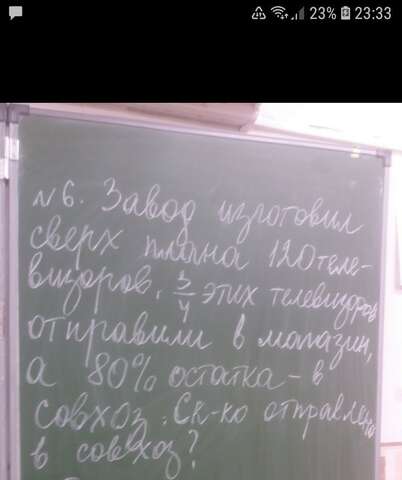 23% 23:33
№6. Завод изготовил
сверх плана 120 теле-
визоров. 3/4 этих телевизоров
отправили в магазин,
а 80% остатка - в
совхоз. Ск-ко отправлено
в совхоз?